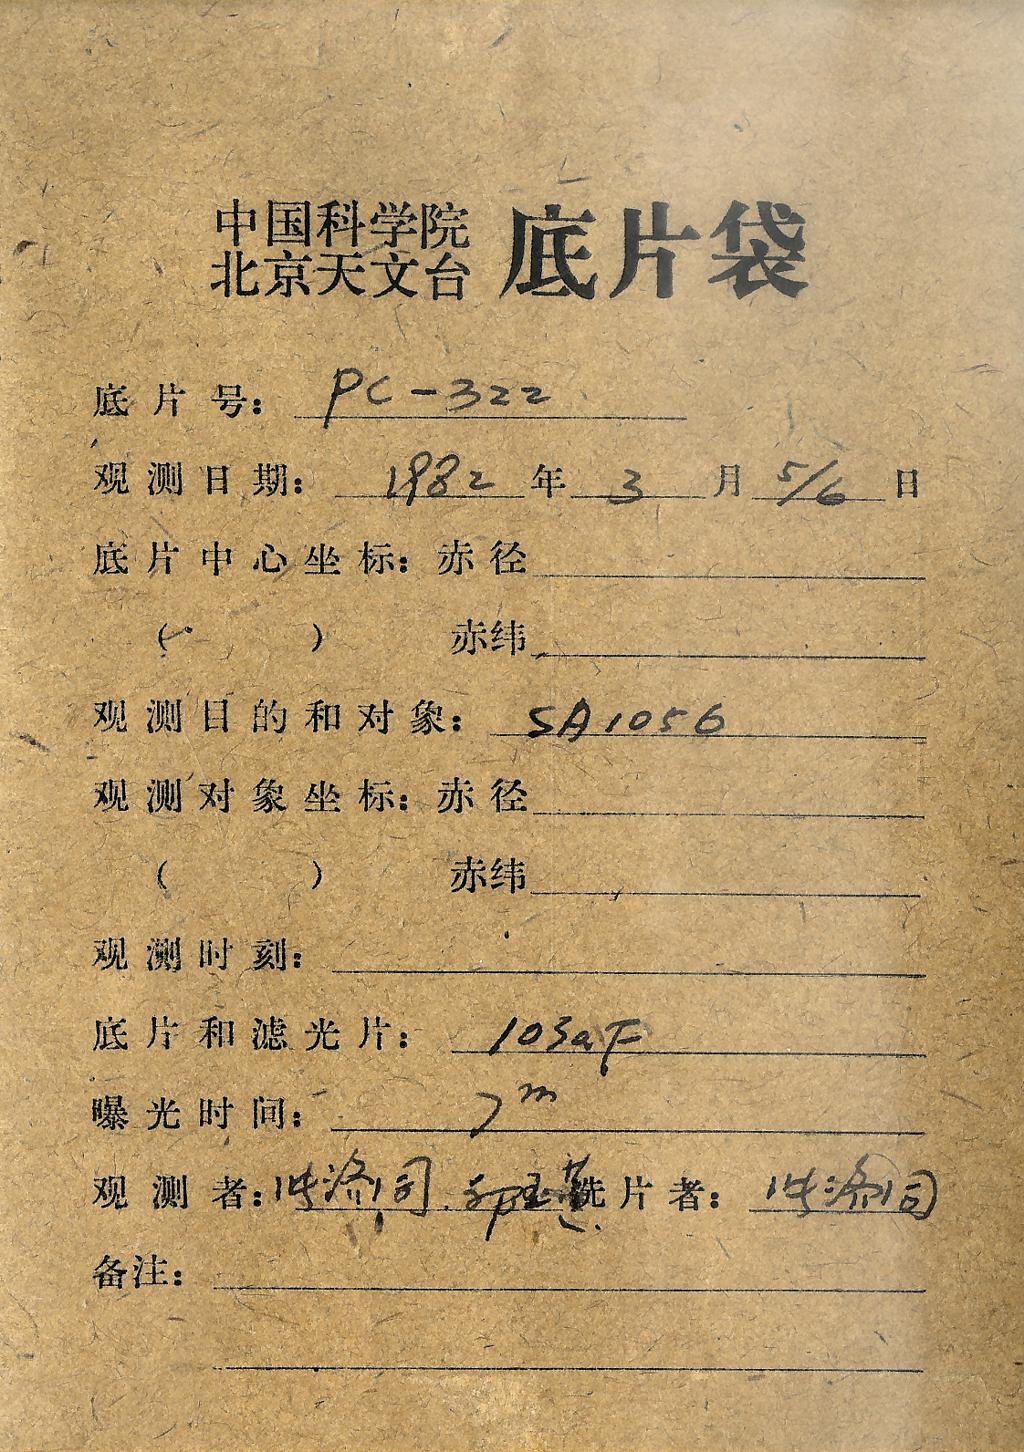 中国科学院
北京天文台 底片袋
底片号: PC-322
观测日期: 1982年3月5/6日
底片中心坐标: 赤径
( ) 赤纬
观测目的和对象: SA1056
观测对象坐标: 赤径
( ) 赤纬
观测时刻:
底片和滤光片: 103aF
曝光时间: 7m
观测者: 洗片者:
备注: